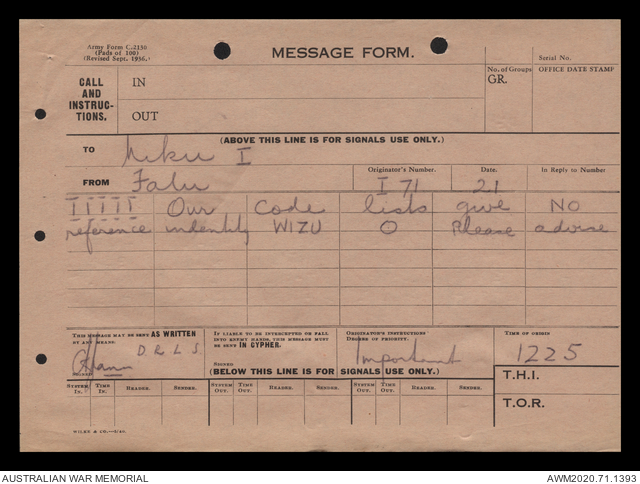 Army Form C.2130
(Pads of 100)
(Revised Sept. 1936.)
MESSAGE FORM.
Serial No.
CALL AND INSTRUC-TIONS.
IN
OUT
No. of Groups
GR.
OFFICE DATE STAMP
(ABOVE THIS LINE IS FOR SIGNALS USE ONLY.)
TO I
FROM
Originator's Number. Date. In Reply to Number
I 71 21
I I I I I Our Code lists give NO
reference indentity WIZU O Please advise
THIS MESSAGE MAY BE SENT AS WRITTEN
BY ANY MEANS.
D R L S
SIGNED
IF LIABLE TO BE INTERCEPTED OR FALL
INTO ENEMY HANDS, THIS MESSAGE MUST
BE SENT IN CYPHER.
SIGNED
ORIGINATOR'S INSTRUCTIONS
DEGREE OF PRIORITY.
Important
TIME OF ORIGIN
1225
(BELOW THIS LINE IS FOR SIGNALS USE ONLY.)
T.H.I.
T.O.R.
SYSTEM IN. TIME IN. READER. SENDER. SYSTEM OUT. TIME OUT. READER. SENDER. SYSTEM OUT. TIME OUT. READER. SENDER.
WILKE & CO.
AUSTRALIAN WAR MEMORIAL
AWM2020.71.1393